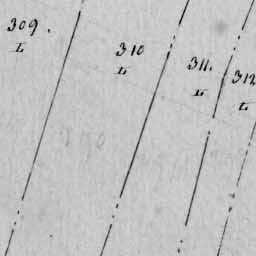 309.
L
310
L
311.
L
312
L